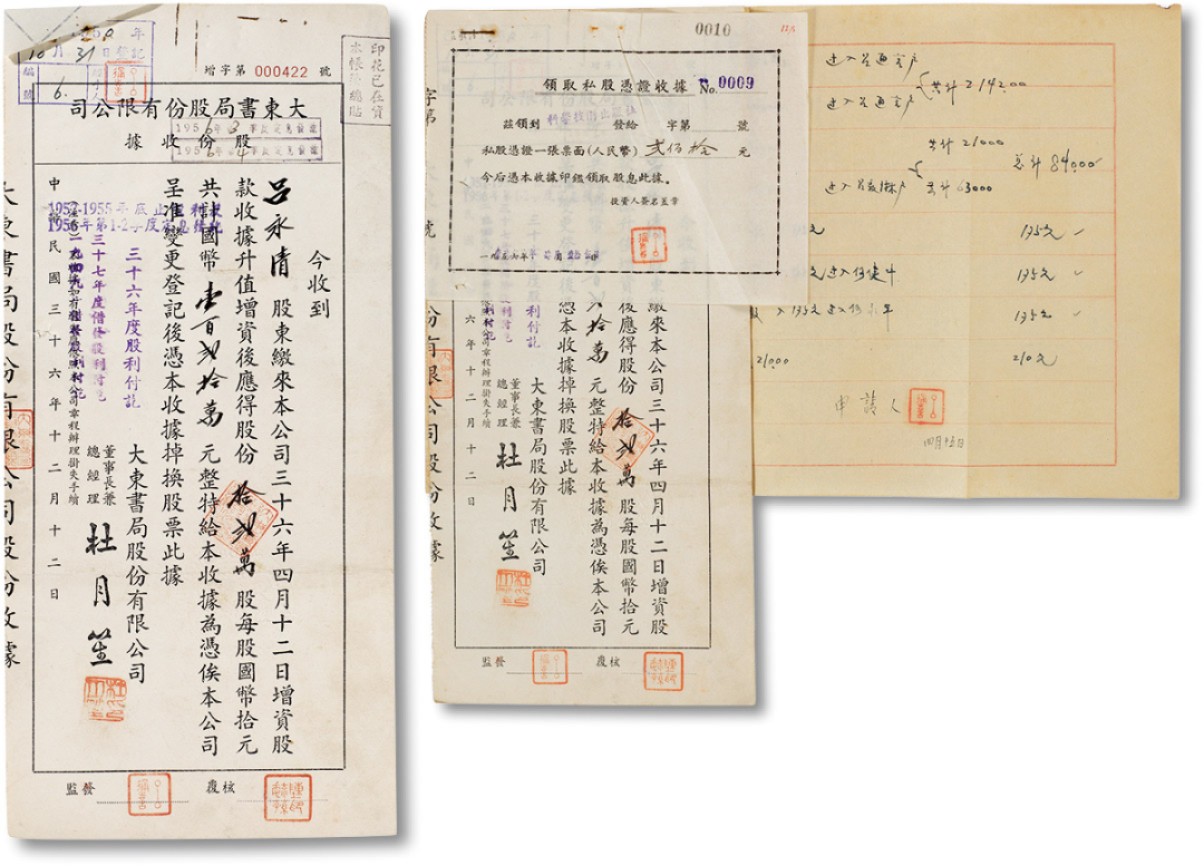 增字第 000422 號
印花已在資
本帳簿總貼
司公限有份股局書東大
據收份股
今收到
呂永清 股東繳來本公司三十六年四月十二日增資股
款收據升值增資後應得股份 拾弍萬 股每股國幣拾元
共計國幣壹百弍拾萬 元整特給本收據為憑俟本公司
呈准變更登記後憑本收據掉換股票此據
大東書局股份有限公司
董事長兼
總經理
杜月笙
中華民國三十六年十二月十二日
三十六年度股利付訖
大東書局股份有限公司股份收據
監發
覆核
0010
領取私股憑證收據 No. 0009
茲領到 發給 字第 號
私股憑證一張票面(人民幣) 弍佰拾 元
今后憑本收據印鑑領取股息此據。
投資人簽名蓋章
繳來本公司三十六年四月十二日增資股
後應得股份 拾弍萬 股每股國幣拾元
拾萬 元整特給本收據為憑俟本公司
憑本收據掉換股票此據
大東書局股份有限公司
董事長兼
總經理
杜月笙
六年十二月十二日
份有限公司股份收據
監發
覆核
共計 214200
共計 21000
共計 63000
總計 84000
195元
195元
195元
21000
210元
申請人
四月十五日